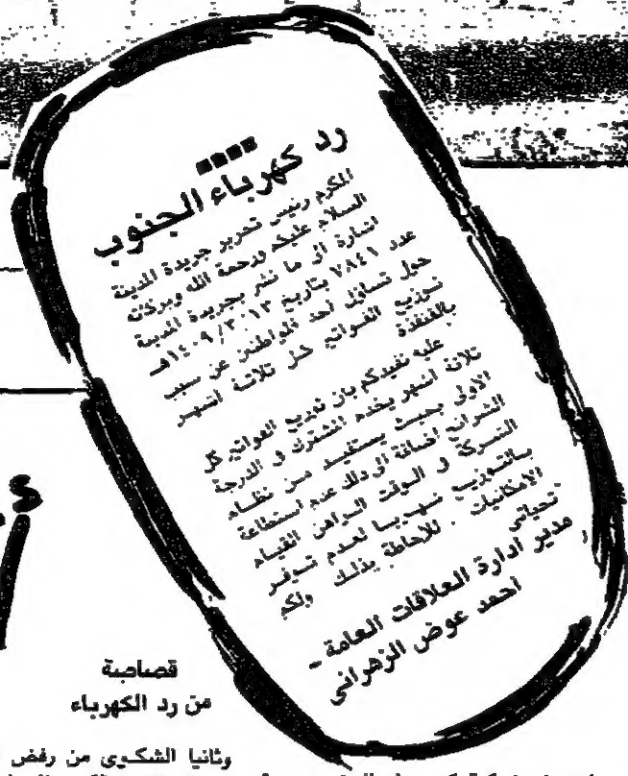 رد كهرباء الجنوب
المكرم رئيس تحرير جريدة المدينة
السلام عليكم ورحمة الله وبركاته
اشارة الى ما نشر بجريدة المدينة
عدد ٧٨٤١ بتاريخ ١٤٠٩/٣/١٣هـ
حول تساؤل أحد المواطنين عن سبب
توزيع الفواتير كل ثلاثة اشهر
بالقنفذة
عليه نفيدكم بان توزيع الفواتير كل
ثلاثة اشهر يخدم المشترك في الدرجة
الاولى بحيث يستفيد من نظام
الشرائح اضافة الى ذلك عدم استطاعة
الشركة في الوقت الراهن القيام
بالتوزيع شهريا لعدم توفر
الامكانيات . للاحاطة بذلك ولكم
تحياتي
مدير ادارة العلاقات العامة -
أحمد عوض الزهراني
قصاصة
من رد الكهرباء
وثانيا الشكوى من رفض